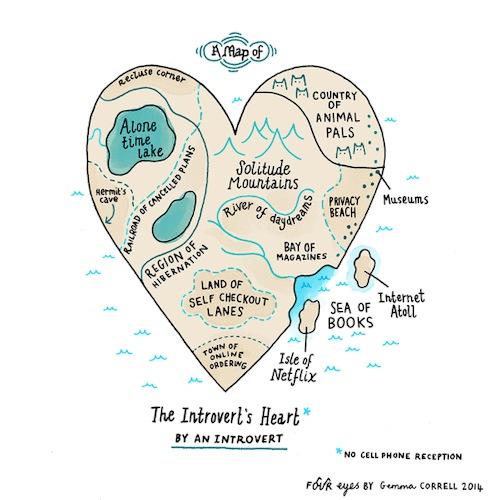 A Map of
Recluse corner
COUNTRY
OF
ANIMAL
PALS
Alone
time
lake
Solitude
Mountains
Museums
Hermit's
cave
RAILROAD OF CANCELLED PLANS
River of daydreams
PRIVACY
BEACH
REGION OF
HIBERNATION
BAY OF
MAGAZINES
LAND OF
SELF CHECKOUT
LANES
Internet
Atoll
SEA OF
BOOKS
TOWN OF
ONLINE
ORDERING
Isle of
Netflix
The Introvert's Heart*
BY AN INTROVERT
*NO CELL PHONE RECEPTION
FOUR eyes BY Gemma CORRELL 2014